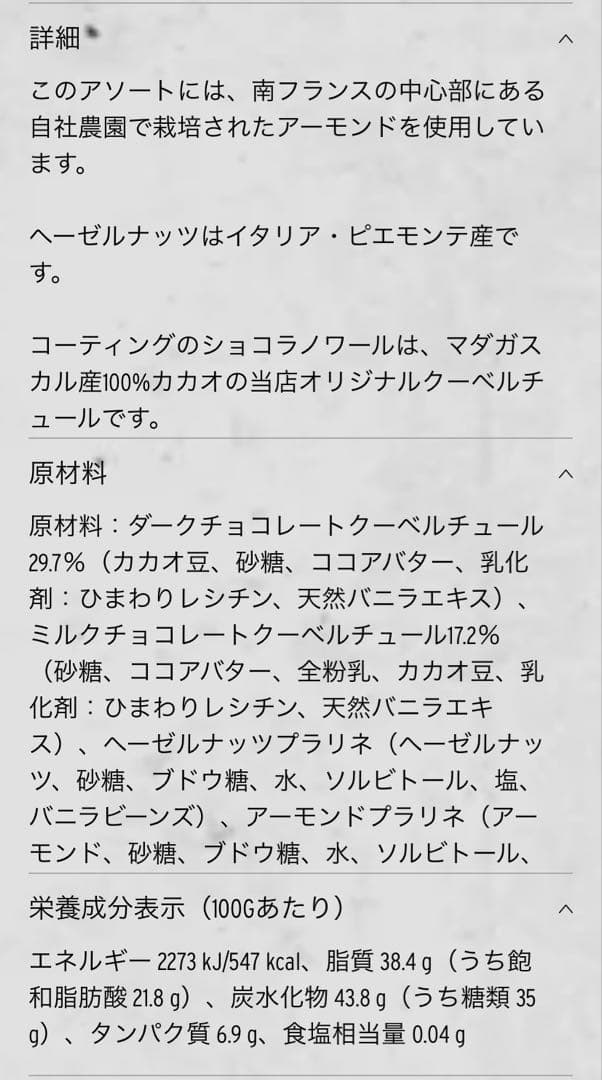 詳細
このアソートには、南フランスの中心部にある
自社農園で栽培されたアーモンドを使用してい
ます。
ヘーゼルナッツはイタリア・ピエモンテ産で
す。
コーティングのショコラノワールは、マダガス
カル産100%カカオの当店オリジナルクーベルチ
ュールです。
原材料
原材料：ダークチョコレートクーベルチュール
29.7%（カカオ豆、砂糖、ココアバター、乳化
剤：ひまわりレシチン、天然バニラエキス）、
ミルクチョコレートクーベルチュール17.2%
（砂糖、ココアバター、全粉乳、カカオ豆、乳
化剤：ひまわりレシチン、天然バニラエキ
ス）、ヘーゼルナッツプラリネ（ヘーゼルナッ
ツ、砂糖、ブドウ糖、水、ソルビトール、塩、
バニラビーンズ）、アーモンドプラリネ（アー
モンド、砂糖、ブドウ糖、水、ソルビトール、
栄養成分表示（100Gあたり）
エネルギー 2273 kJ/547 kcal、脂質 38.4 g（うち飽
和脂肪酸 21.8 g）、炭水化物 43.8 g（うち糖類 35
g）、タンパク質 6.9 g、食塩相当量 0.04 g